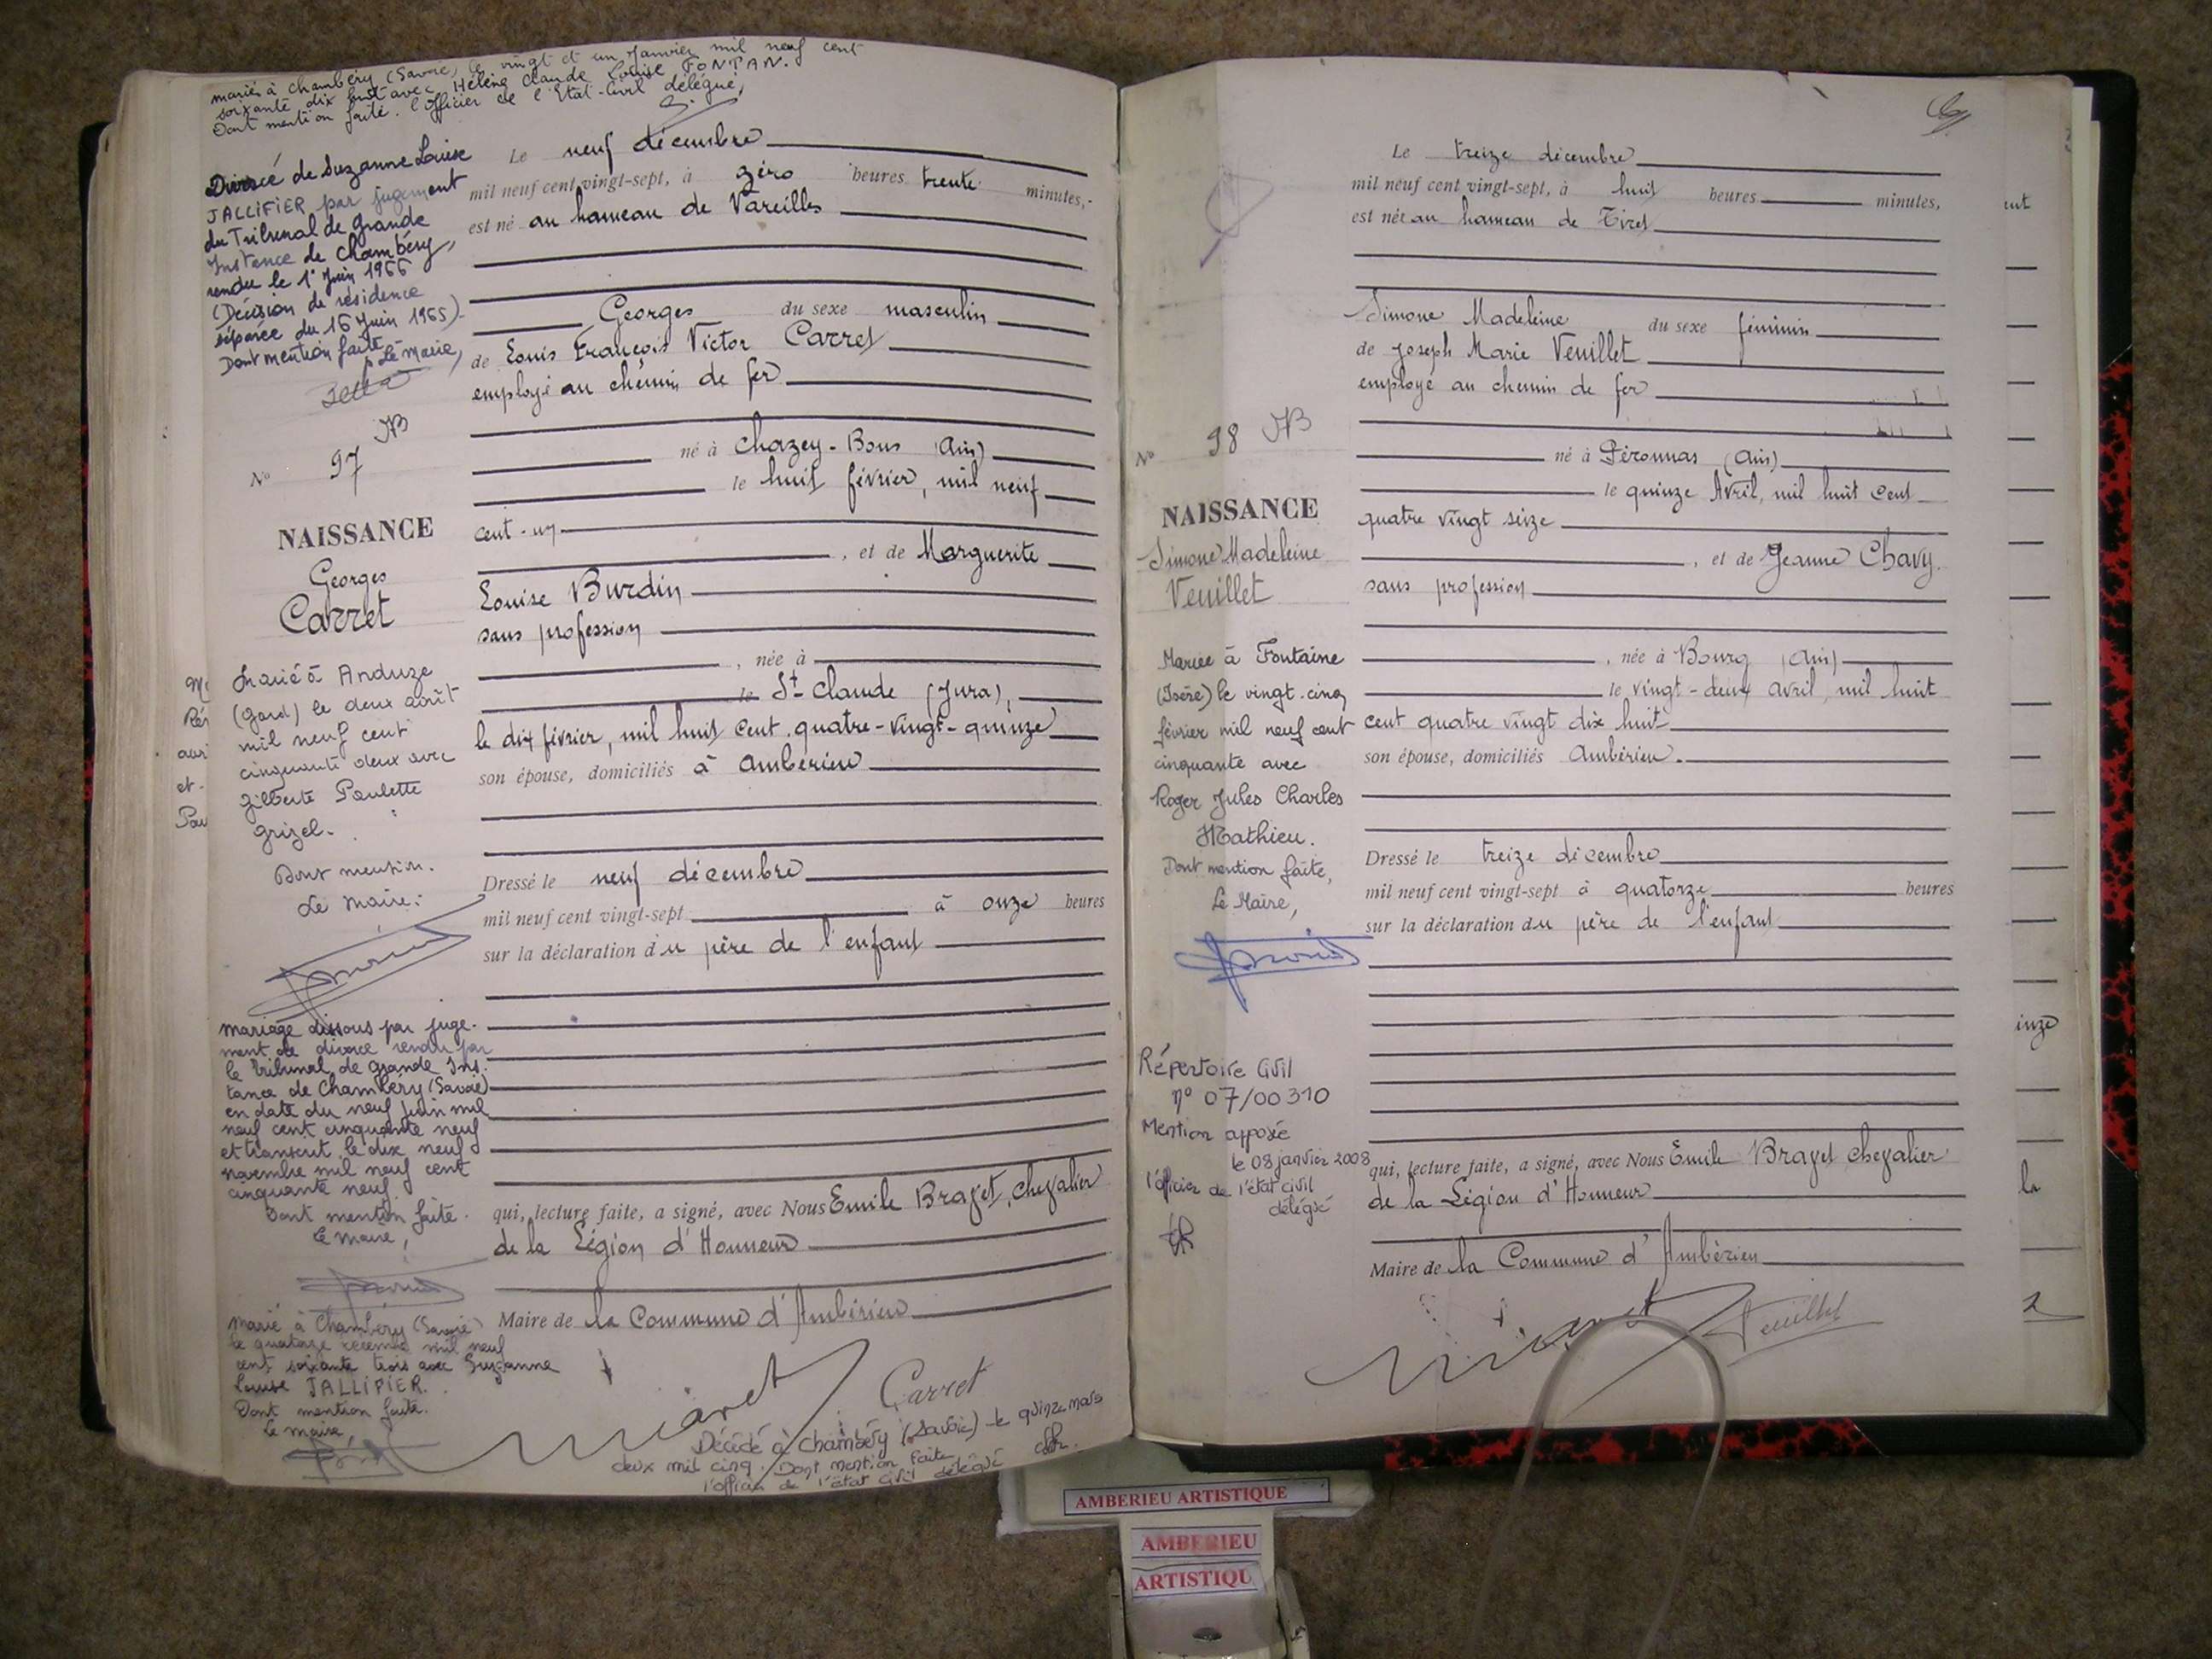 mariés à Chambéry (Savoie) le vingt et un Janvier mil neuf cent
soixante dix huit avec Hélène Claude Louise FONTAN.
Dont mention faite. l'officier de l'Etat-Civil délégué,
Divorcé de Suzanne Louise
JALLIFIER par jugement
du Tribunal de Grande
Instance de Chambéry,
rendu le 1° Juin 1966
(Décision de résidence
séparée du 16 Juin 1965).
Dont mention faite
p. Le Maire,
No 97
NAISSANCE
Georges
Carret
Marié à Anduze
(Gard) le deux août
mil neuf cent
cinquante deux avec
Gilberte Paulette
Grizel.
Dont mention.
Le Maire:
mariage dissous par juge-
ment de divorce rendu par
le Tribunal de Grande Ins-
tance de Chambéry (Savoie)
en date du neuf juin mil
neuf cent cinquante neuf
et transcrit le dix neuf
novembre mil neuf cent
cinquante neuf.
Dont mention faite.
Le Maire,
Marié à Chambéry (Savoie)
le quatorze décembre mil neuf
cent soixante trois avec Suzanne
Louise JALLIFIER.
Dont mention faite.
Le Maire,
Le neuf décembre
mil neuf cent vingt-sept, à zéro heures trente minutes,-
est né au hameau de Vareilles
Georges du sexe masculin
de Louis François Victor Carret
employé au chemin de fer
né à Chazey-Bons (Ain)
le huit février, mil neuf
cent-un
, et de Marguerite
Louise Burdin
sans profession
, née à
le St-Claude (Jura),
le dix février, mil huit cent quatre-vingt-quinze
son épouse, domiciliés à Ambérieu
Dressé le neuf décembre
mil neuf cent vingt-sept à onze heures
sur la déclaration du père de l'enfant
qui, lecture faite, a signé, avec Nous Emile Bravet, chevalier
de la Légion d'Honneur
Maire de la Commune d'Ambérieu
Carret
Décédé à Chambéry (Savoie) le quinze mars
deux mil cinq. Dont mention faite
l'officier de l'état civil délégué
Le treize décembre
mil neuf cent vingt-sept, à huit heures minutes,
est née au hameau de Tiret
Simone Madeleine du sexe féminin
de Joseph Marie Veuillet
employé au chemin de fer
né à Péronnas (Ain)
le quinze Avril, mil huit cent
quatre vingt seize
, et de Jeanne Chavy.
sans profession
, née à Bourg (Ain)
le vingt-deux avril, mil huit
cent quatre vingt dix huit
son épouse, domiciliés Ambérieu.
Dressé le treize décembre
mil neuf cent vingt-sept à quatorze heures
sur la déclaration du père de l'enfant
qui, lecture faite, a signé, avec Nous Emile Bravet chevalier
de la Légion d'Honneur
Maire de la Commune d'Ambérieu
Veuillet
No 98
NAISSANCE
Simone Madeleine
Veuillet
Mariée à Fontaine
(Isère) le vingt-cinq
février mil neuf cent
cinquante avec
Roger Jules Charles
Mathieu.
Dont mention faite,
Le Maire,
Répertoire Civil
n° 07/00310
Mention apposée
le 08 janvier 2008
l'officier de l'état civil
délégué
AMBERIEU ARTISTIQUE
AMBERIEU
ARTISTIQU